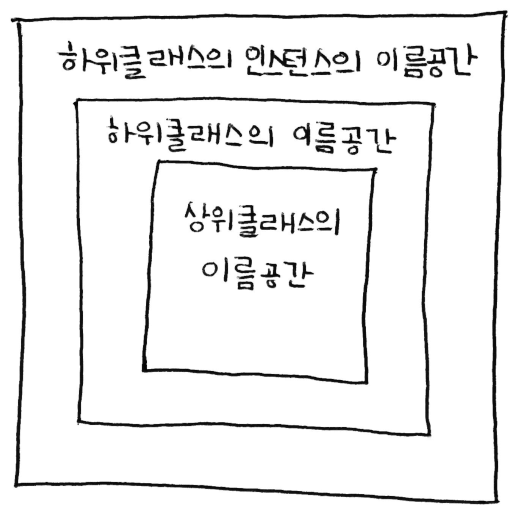 하위클래스의 인스턴스의 이름공간
하위클래스의 이름공간
상위클래스의
이름공간